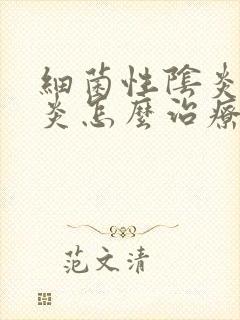 細菌性陰炎
炎怎麼治療
范文清